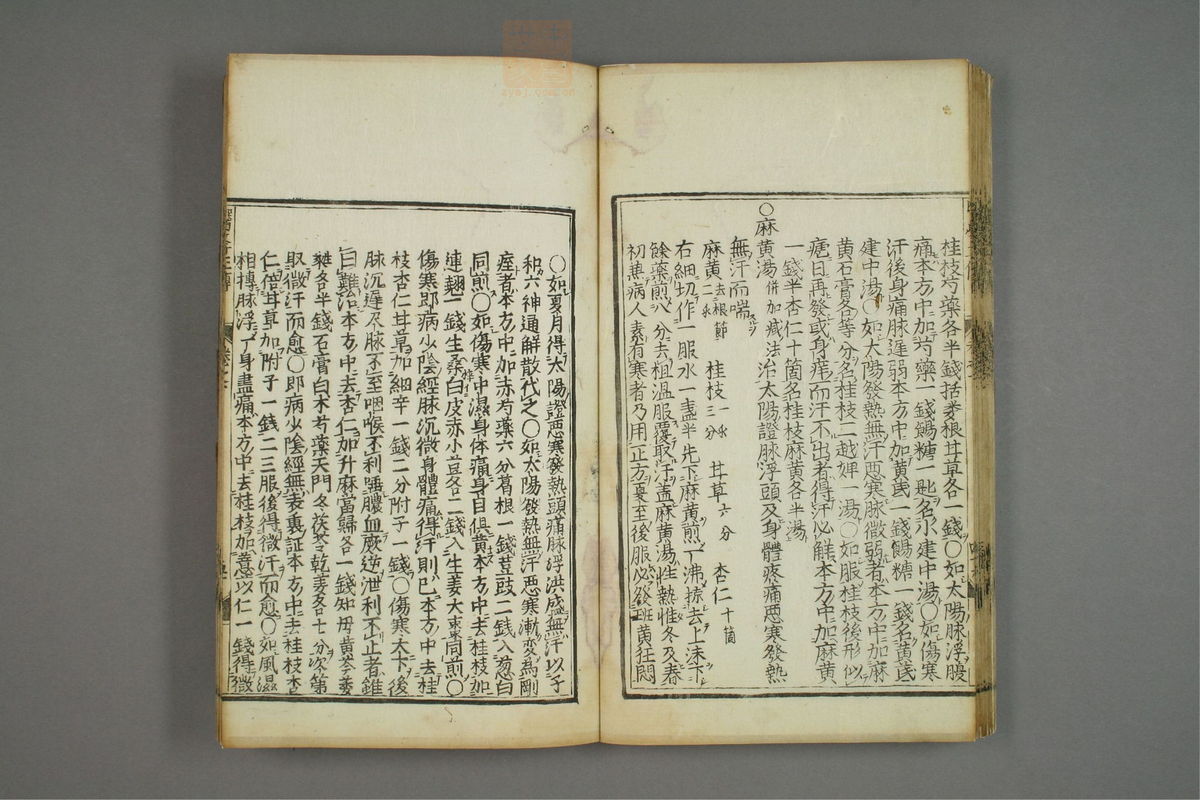 桂枝芍藥各半錢括蔞根甘草各一錢〇如太陽脉浮腹
痛本方中加芍藥一錢餳糖一匙名小建中湯〇如傷寒
汗後身痛脉遲弱本方中加黃芪一錢餳糖一錢名黃芪
建中湯〇如太陽發熱無汗惡寒脉微弱者本方中加麻
黃石膏各等分名桂枝二越婢一湯〇如服桂枝後形似
瘧日再發或身痒而汗不出者得汗必觧本方中加麻黃
一錢半杏仁十箇名桂枝麻黃各半湯
〇麻黃湯併加减法治太陽證脉浮頭及身體疼痛惡寒發熱
無汗而喘
麻黃去根節二錢 桂枝一錢三分 甘草六分 杏仁十箇
右細切作一服水一盞半先下麻黃煎一沸掠去上沫下
餘藥煎八分去粗溫服覆取汗盖麻黃湯性熱惟冬及春
初熱病人素有寒者乃用正方夏至後服必發班黃狂悶
〇如夏月得太陽證惡寒發熱頭痛脉浮洪盛無汗以子
和六神通解散代之〇如太陽發熱無汗惡寒漸変為剛
痓者本方中加赤芍藥六分葛根一錢荳豉二錢入葱白
同煎〇如傷寒中濕身体痛身目俱黃本方中去桂枝加
連翹一錢生桑白皮赤小豆各二錢入生姜大棗同煎〇
傷寒即病少陰經脉沉微身體痛得汗則已本方中去桂
枝杏仁甘草加細辛一錢二分附子一錢〇傷寒大下後
脉沉遲尺脉不至咽喉不利唾膿血厥逆泄利不止者雖
曰難治本方中去杏仁加升麻當歸各一錢知母黃芩萎
蕤各半錢石膏白术芍藥天門冬茯苓乾姜各七分次第
取微汗而愈〇即病少陰經無表裏証本方中去桂枝杏
仁倍甘草加附子一錢二三服後得微汗而愈〇如風濕
相摶脉浮一身盡痛本方中去桂枝加薏苡仁一錢得微